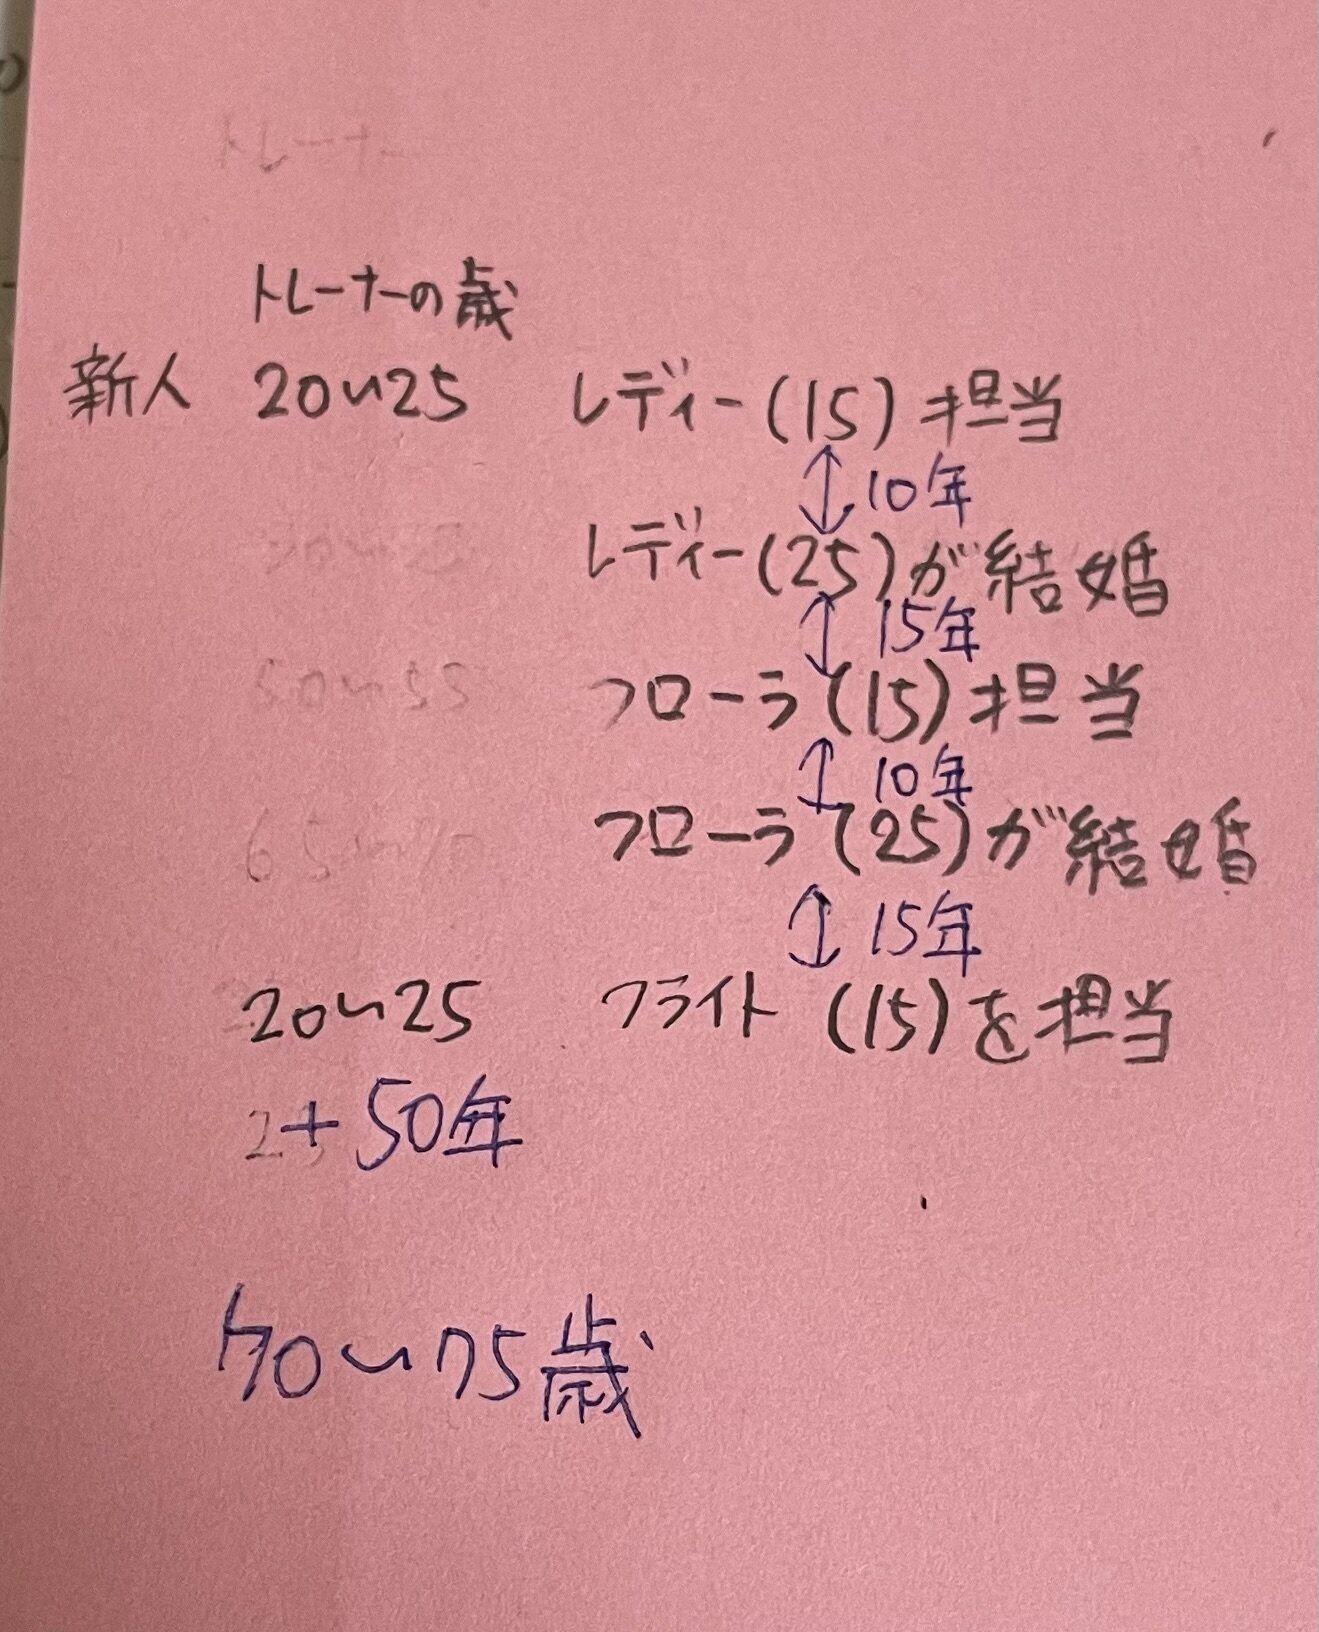 トレーナー
トレーナーの歳
新人 20〜25 レディー(15)担当
10年
レディー(25)が結婚
15年
50〜55 フローラ(15)担当
10年
65〜 フローラ(25)が結婚
15年
20〜25 フライト(15)を担当
+50年
70〜75歳